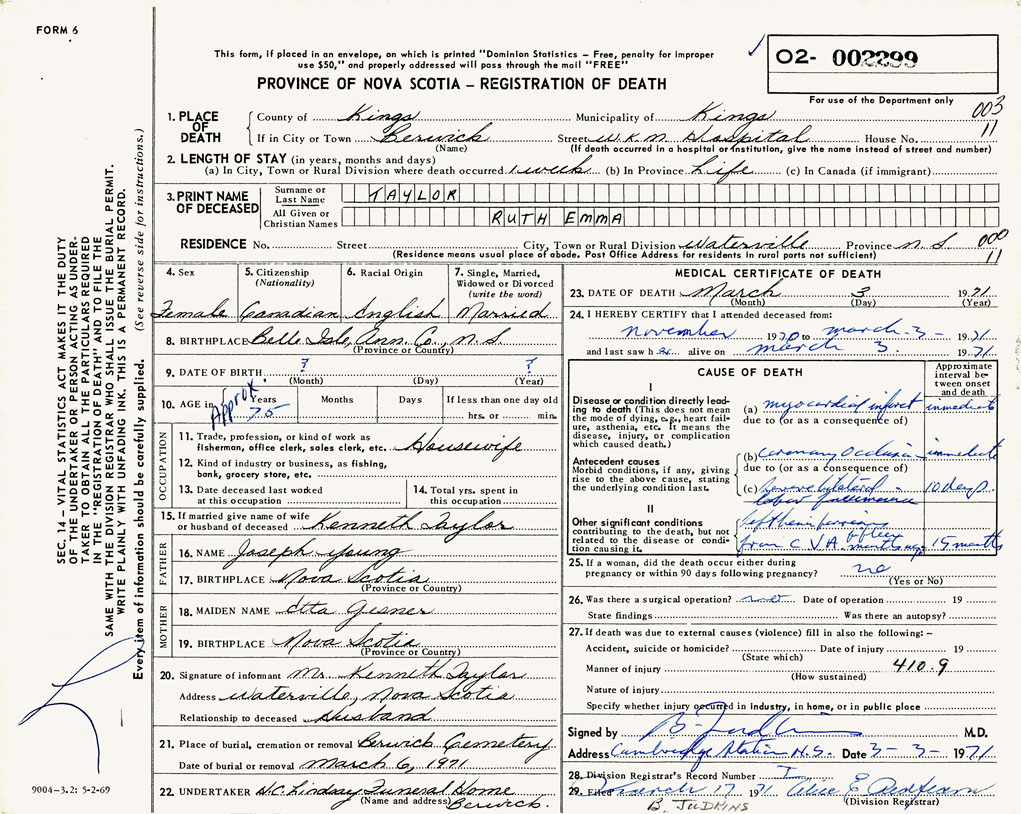 FORM 6
This form, if placed in an envelope, on which is printed "Dominion Statistics – Free, penalty for improper
use $50," and properly addressed will pass through the mail "FREE"
PROVINCE OF NOVA SCOTIA – REGISTRATION OF DEATH
O2- 002299
For use of the Department only
003
11
SEC. 14 – VITAL STATISTICS ACT MAKES IT THE DUTY
OF THE UNDERTAKER OR PERSON ACTING AS UNDER-
TAKER TO OBTAIN ALL THE PARTICULARS REQUIRED
IN THE "REGISTRATION OF DEATH" AND TO FILE THE
SAME WITH THE DIVISION REGISTRAR WHO SHALL ISSUE THE BURIAL PERMIT.
WRITE PLAINLY WITH UNFADING INK. THIS IS A PERMANENT RECORD.
Every item of information should be carefully supplied. (See reverse side for instructions.)
1. PLACE OF DEATH
County of Kings Municipality of Kings
If in City or Town Berwick Street W.K.M. Hospital House No.
(Name) (If death occurred in a hospital or institution, give the name instead of street and number)
2. LENGTH OF STAY (in years, months and days)
(a) In City, Town or Rural Division where death occurred 1 week (b) In Province Life (c) In Canada (if immigrant)
3. PRINT NAME OF DECEASED
Surname or Last Name TAYLOR
All Given or Christian Names RUTH EMMA
RESIDENCE No. Street City, Town or Rural Division Waterville Province N.S. 000
11
(Residence means usual place of abode. Post Office Address for residents in rural parts not sufficient)
4. Sex Female
5. Citizenship (Nationality) Canadian
6. Racial Origin English
7. Single, Married, Widowed or Divorced (write the word) Married
8. BIRTHPLACE Belle Isle, Ann. Co., N.S.
(Province or County)
9. DATE OF BIRTH ? ?
(Month) (Day) (Year)
10. AGE in Approx. Years 75 Months Days If less than one day old
hrs. or min.
OCCUPATION
11. Trade, profession, or kind of work as
fisherman, office clerk, sales clerk, etc. Housewife
12. Kind of industry or business, as fishing,
bank, grocery store, etc.
13. Date deceased last worked
at this occupation
14. Total yrs. spent in
this occupation
15. If married give name of wife
or husband of deceased Kenneth Taylor
FATHER
16. NAME Joseph Young
17. BIRTHPLACE Nova Scotia
(Province or County)
MOTHER
18. MAIDEN NAME Etta Gesner
19. BIRTHPLACE Nova Scotia
(Province or Country)
20. Signature of informant Mr. Kenneth Taylor
Address Waterville, Nova Scotia
Relationship to deceased Husband
21. Place of burial, cremation or removal Berwick Cemetery
Date of burial or removal March 6, 1971
22. UNDERTAKER H.C. Lindsay Funeral Home
(Name and address) Berwick.
9004-3.2: 5-2-69
MEDICAL CERTIFICATE OF DEATH
23. DATE OF DEATH March 3 1971
(Month) (Day) (Year)
24. I HEREBY CERTIFY that I attended deceased from:
November 1970 to March 3 - 1971
and last saw h er alive on March 3. 1971
CAUSE OF DEATH
Approximate interval be-tween onset and death
I
Disease or condition directly lead-
ing to death (This does not mean
the mode of dying, e.g., heart fail-
ure, asthenia, etc. It means the
disease, injury, or complication
which caused death.)
(a) myocardial infarct immediate
due to (or as a consequence of)
Antecedent causes
Morbid conditions, if any, giving
rise to the above cause, stating
the underlying condition last.
(b) coronary occlusion immediate
due to (or as a consequence of)
(c) severe bilateral lobar pneumonia 10 days
II
Other significant conditions
contributing to the death, but not
related to the disease or condi-
tion causing it.
left hemiparesis
from C.V.A. fifteen months ago 15 months
25. If a woman, did the death occur either during
pregnancy or within 90 days following pregnancy? no
(Yes or No)
26. Was there a surgical operation? Date of operation 19
State findings Was there an autopsy?
27. If death was due to external causes (violence) fill in also the following: –
Accident, suicide or homicide? Date of injury 19
(State which)
Manner of injury 410.9
(How sustained)
Nature of injury
Specify whether injury occurred in industry, in home, or in public place
Signed by B. Judkins M.D.
Address Cambridge Station N.S. Date 3-3-1971
28. Division Registrar's Record Number I
29. Filed March 17 1971 Alice E Redfearn
(Division Registrar)
B. JUDKINS